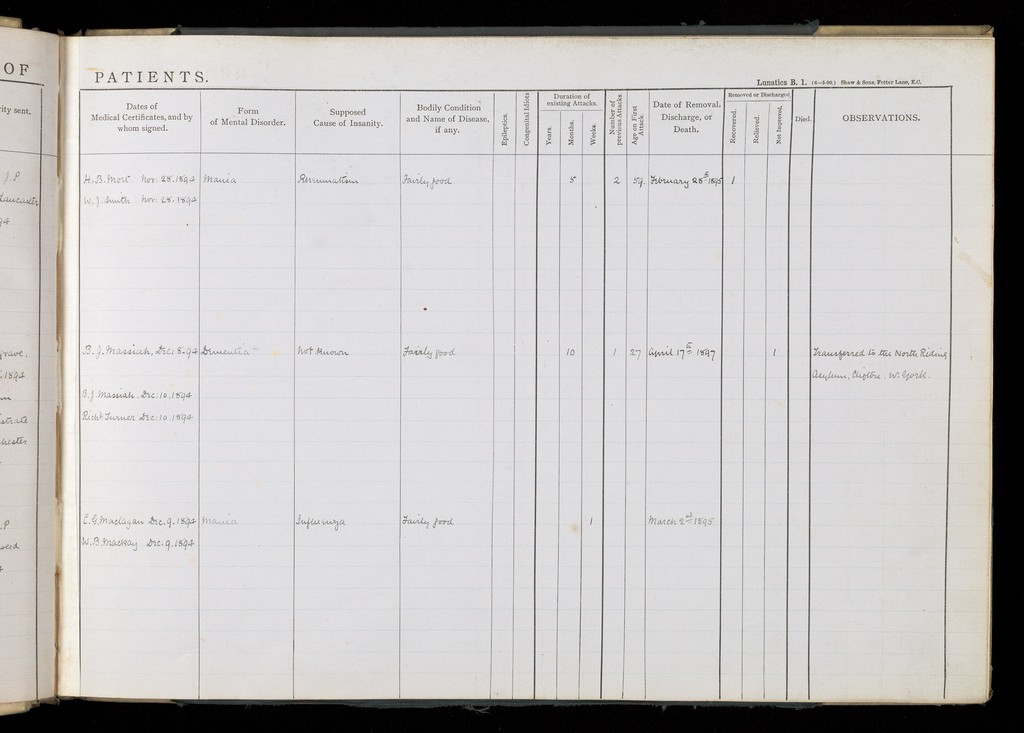 OF
PATIENTS.
Lunatics B. 1. (6—5-90.) Shaw & Sons, Fetter Lane, E.C.
ity sent.
Dates of
Medical Certificates, and by
whom signed.
Form
of Mental Disorder.
Supposed
Cause of Insanity.
Bodily Condition
and Name of Disease,
if any.
Epileptics.
Congenital Idiots
Duration of
existing Attacks.
Years.
Months.
Weeks.
Number of
previous Attacks.
Age on First
Attack.
Date of Removal,
Discharge, or
Death.
Removed or Discharged
Recovered.
Relieved.
Not Improved.
Died.
OBSERVATIONS.
J.P
Lancaster
H. B. Mort Nov: 28. 1894 Mania Rheumatism Fairly good 5 2 59. February 28th 1895 1
W. J. Smith Nov: 28. 1894
grave,
B. J. Massiah. Dec: 8. 94 Dementia Not Known Fairly good 10 1 27 April 17th 1897 1 Transferred to the North Riding
1894 Asylum, Clifton, Nr. York.
B. J. Massiah. Dec: 10. 1894
Richd Turner Dec: 10. 1894
strate
chester
P
C. G. Maclagan Dec. 9. 1894 Mania Influenza Fairly good 1 March 2nd 1895
W. B. Mackay Dec. 9. 1894